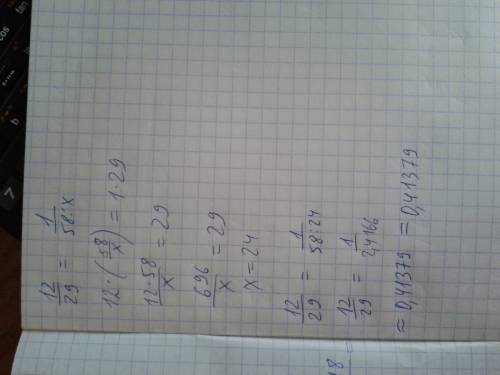 12/29 = 1/58:x
12·(58/x) = 1·29
12·58/x = 29
696/x = 29
x = 24
12/29 = 1/58:24
12/29 = 1/2,4166
≈ 0,41379 = 0,41379
18
7